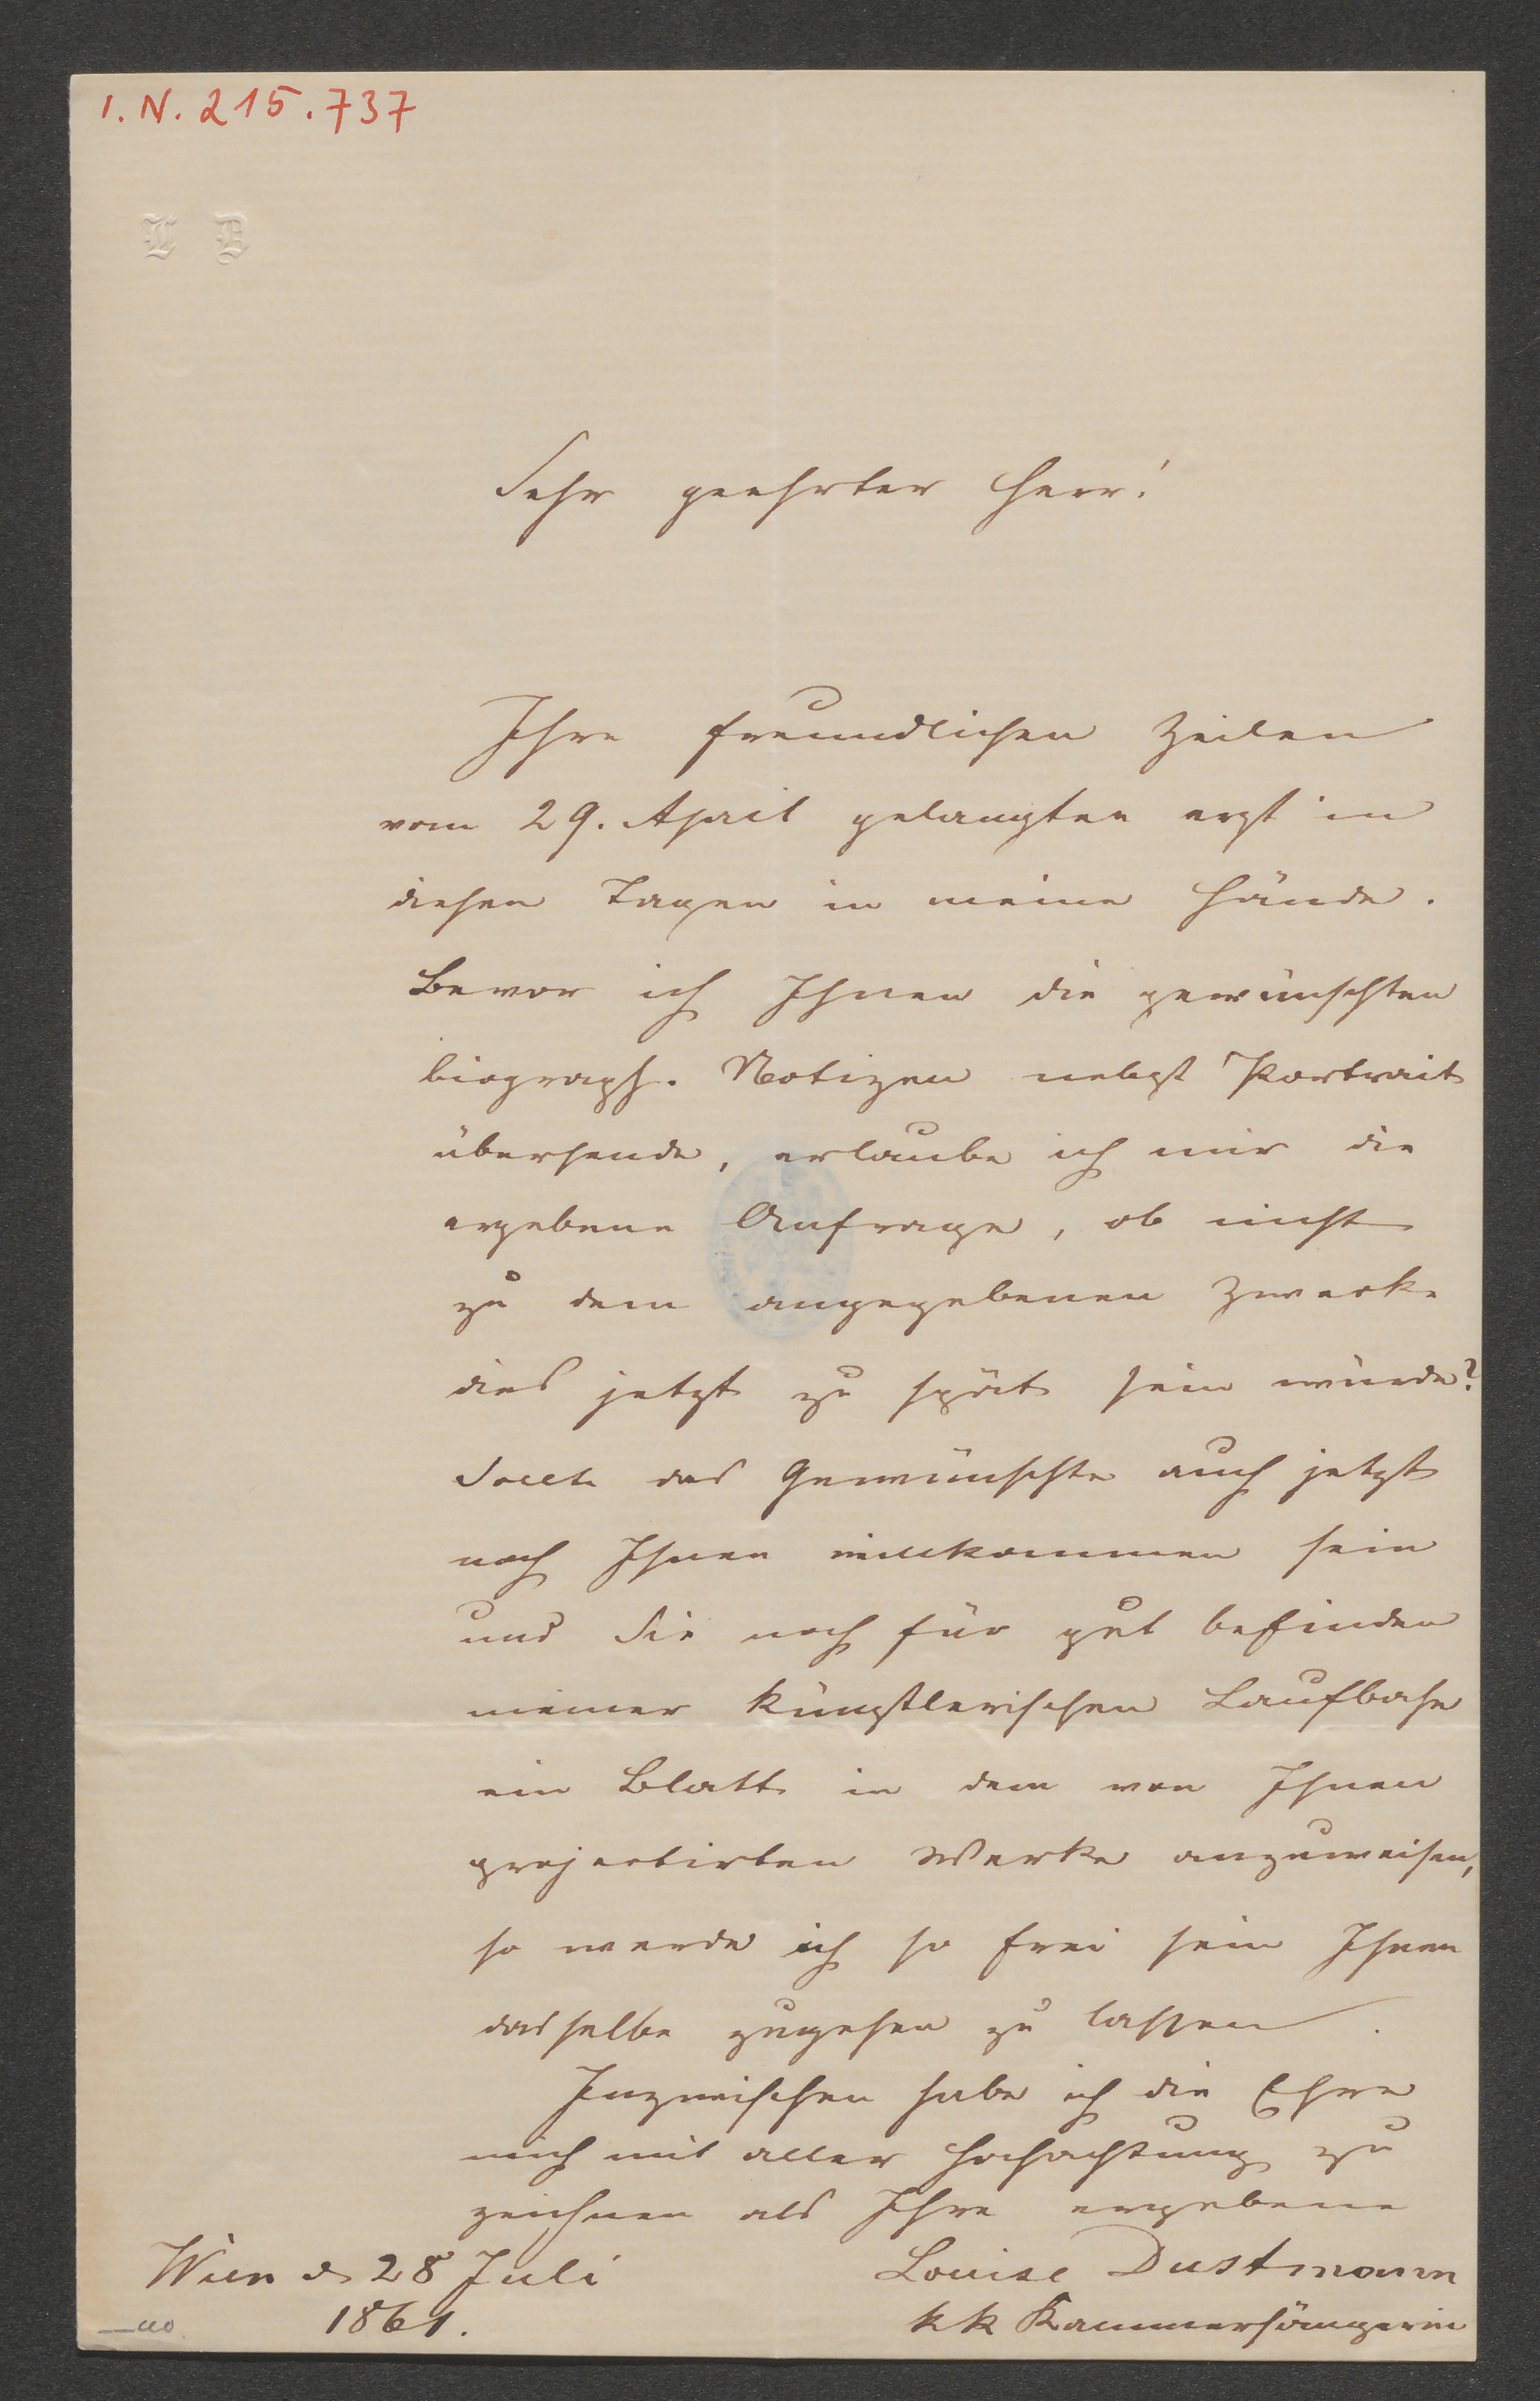 I. N. 215.737
L D
Sehr geehrter Herr!
Ihre freundlichen Zeilen
vom 29. April gelangten erst in
diesen Tagen in meine Hände.
Bevor ich Ihnen die gewünschten
biograph. Notizen nebst Portrait
übersende, erlaube ich mir die
ergebene Anfrage, ob nicht
zu dem angegebenen Zwecke
dies jetzt zu spät sein würde?
Sollte das Gewünschte auch jetzt
noch Ihnen willkommen sein
und Sie noch für gut befinden
meiner künstlerischen Laufbahn
ein Blatt in dem von Ihnen
projectirten Werke anzuweisen,
so werde ich so frei sein Ihnen
dasselbe zugehen zu lassen.
Inzwischen habe ich die Ehre
mich mit aller Hochachtung zu
zeichnen als Ihre ergebene
Louise Dustmann
kk Kammersängerin
Wien d 28 Juli
1861.